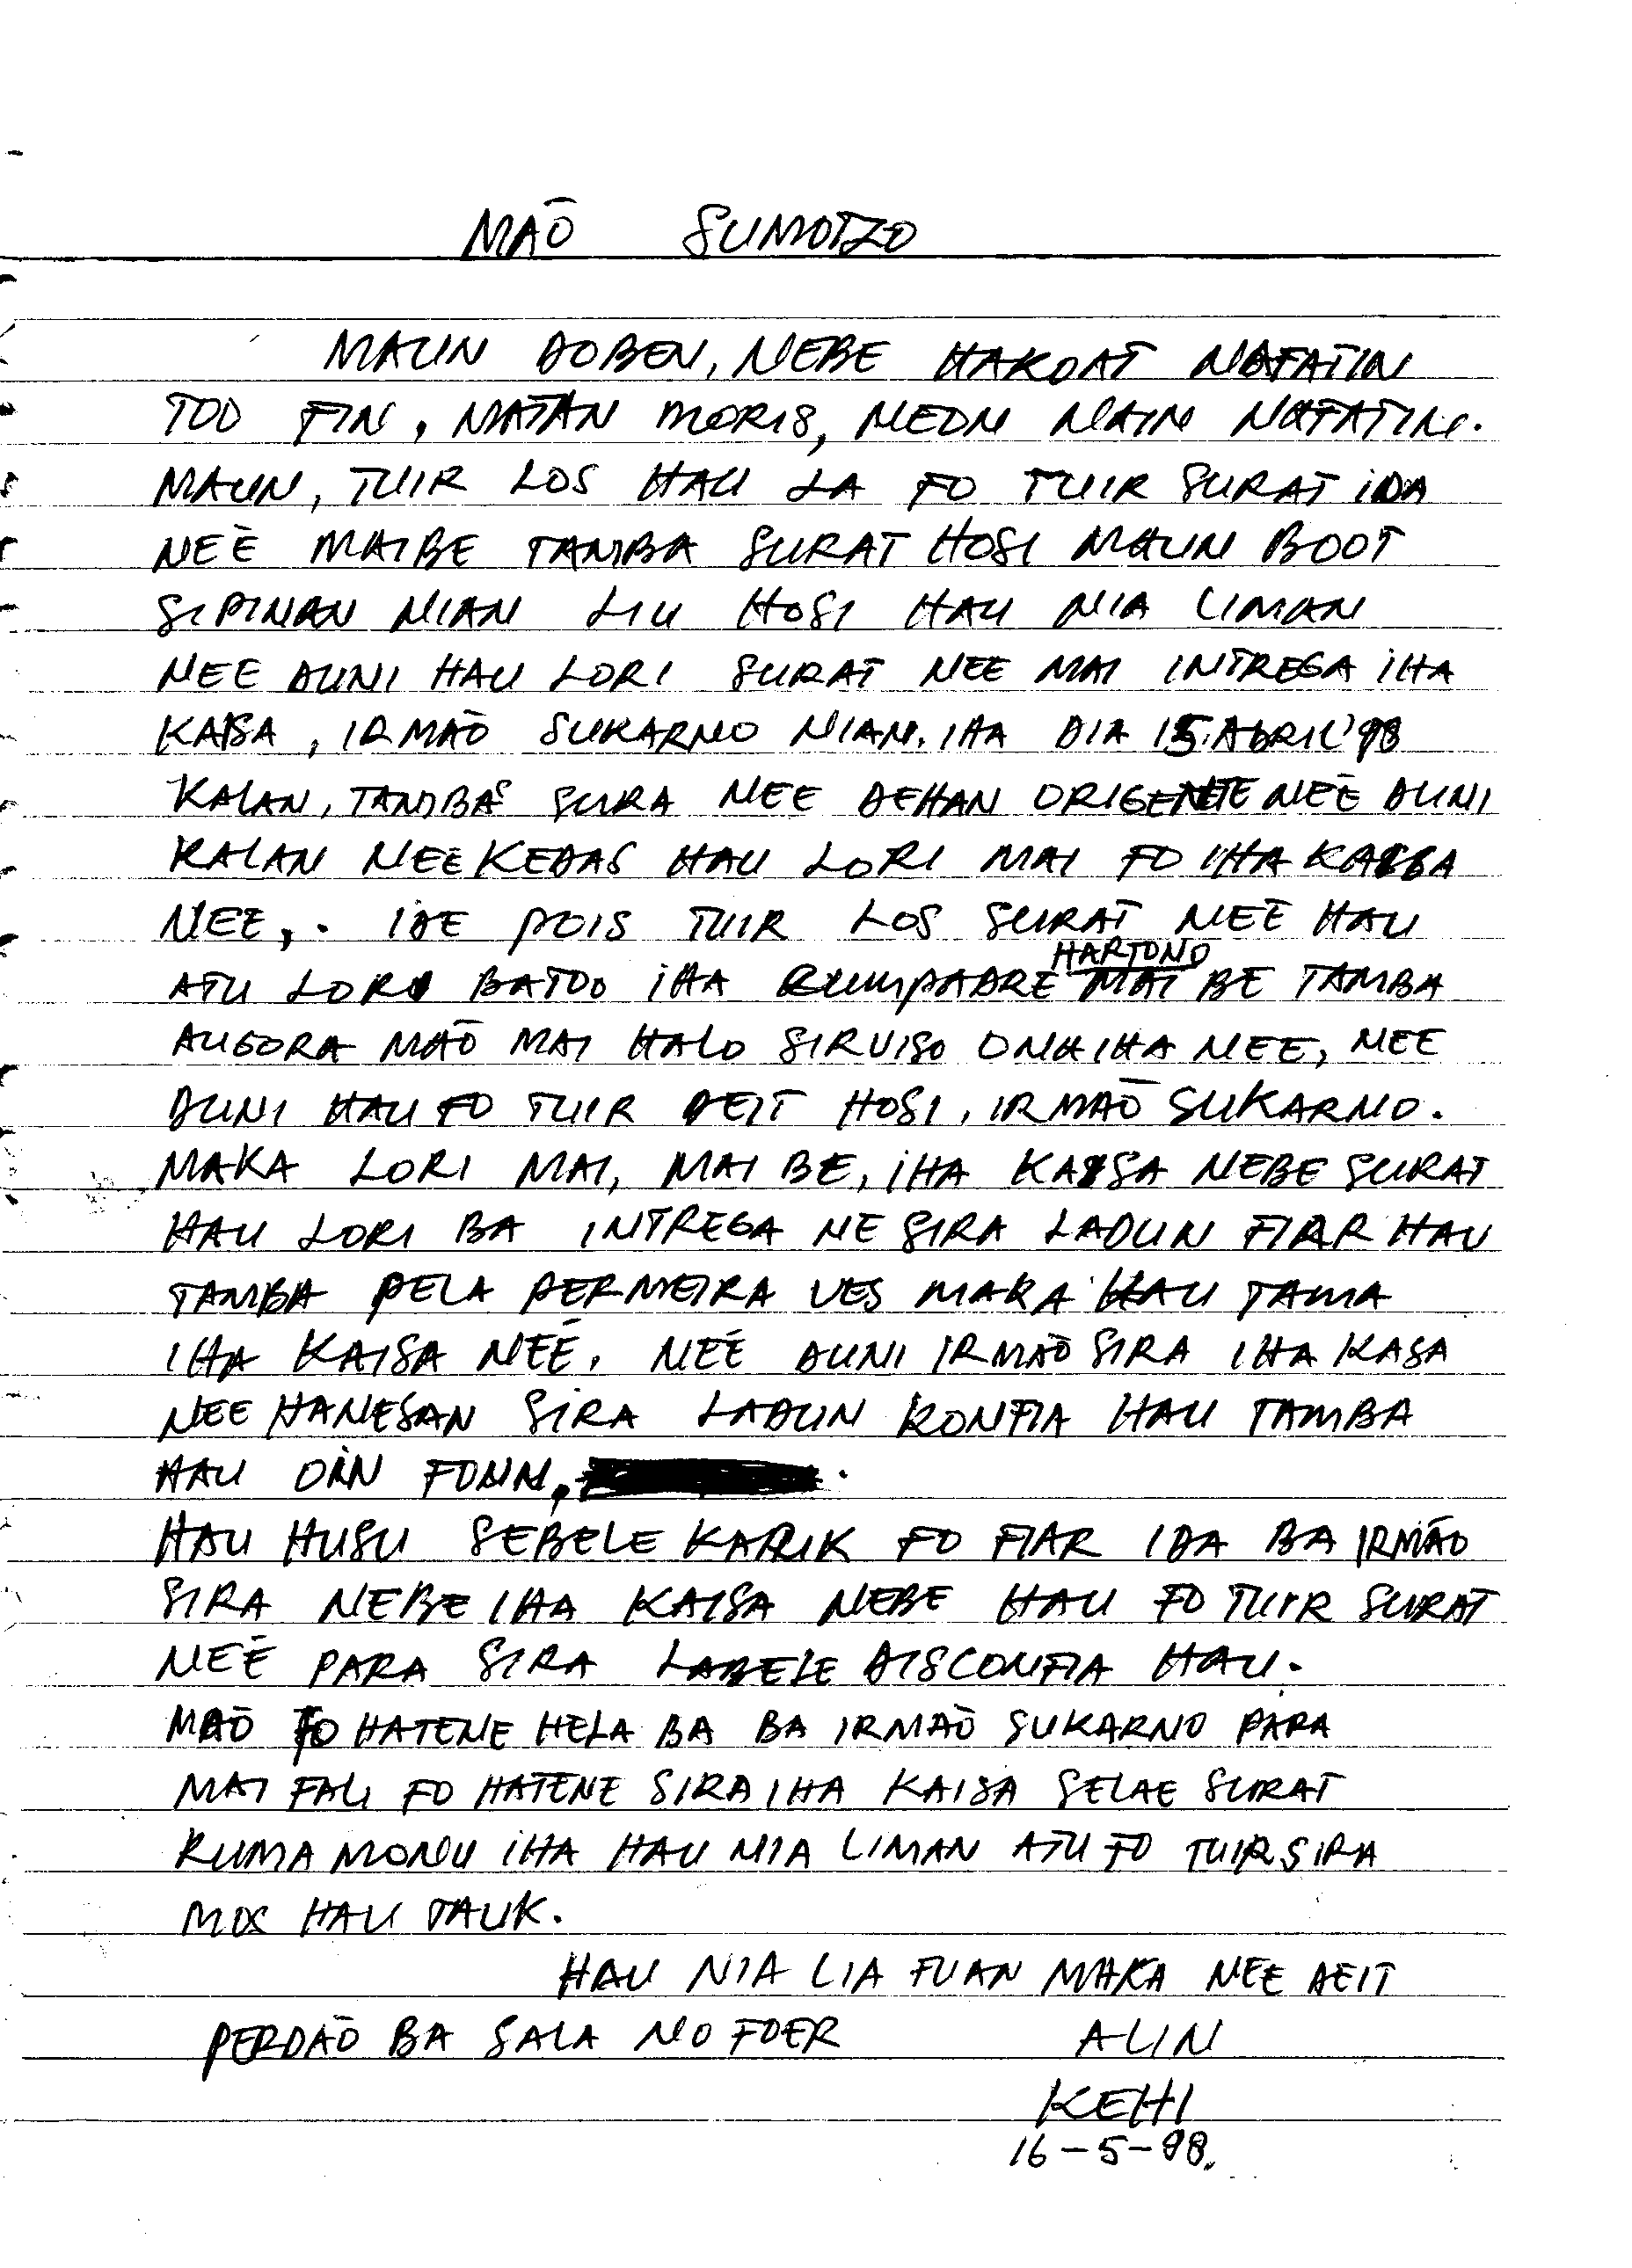 MAÕ SUMOTZO
MAUN DOBEN, NEBE HAKOAT NAFATIN
TOO FIN, MATAN MORIS, NEON NAIN NAFATIN.
MAUN, TUIR LOS HAU LA FO TUIR SURAT IDA
NEÈ MAIBE TAMBA SURAT HOSI MAUN BOOT
SIPINAN NIAN LIU HOSI HAU NIA LIMAN
NEE DUNI HAU LORI SURAT NEE MAI INTREGA IHA
KAISA, IRMAÕ SUKARNO NIAN. IHA DIA 15. ABRIL'98
KALAN, TAMBAS SURA NEE DEHAN ORIGENTE NEÈ DUNI
KALAN NEE KEDAS HAU LORI MAI FO IHA KAISA
NEE, . IDE POIS TUIR LOS SURAT NEÈ HAU
HARTONO
ATU LORI BATOO IHA KUMPADRE MAI BE TAMBA
AUGORA MAÕ MAI HALO SIRVISO ONA IHA NEE, NEE
DUNI HAU FO TUIR DEIT HOSI, IRMAÕ SUKARNO.
MAKA LORI MAI, MAI BE, IHA KAISA NEBE SURAT
HAU LORI BA INTREGA NE SIRA LADUN FIAR HAU
TAMBA PELA PERMEIRA VES MAKA HAU TAMA
IHA KAISA NEÉ, NEÉ DUNI IRMAÕ SIRA IHA KASA
NEE HANESAN SIRA LADUN KONFIA HAU TAMBA
HAU OÌN FOUN, .
HAU HUSU SEBELE KARIK FO FIAR IDA BA IRMÃO
SIRA NEBE IHA KAISA NEBE HAU FO TUIR SURAT
NEÈ PARA SIRA LABELE DISCONFIA HAU.
MAÕ FO HATENE HELA BA BA IRMAÕ SUKARNO PARA
MAI FALI FO HATENE SIRA IHA KAISA SELAE SURAT
RUMA MONU IHA HAU NIA LIMAN ATU FO TUIR SIRA
MOS HAU TAUK.
HAU NIA LIA FUAN MAKA NEE DEIT
PERDAÕ BA SALA NO FOER ALIN
KEHI
16-5-98.